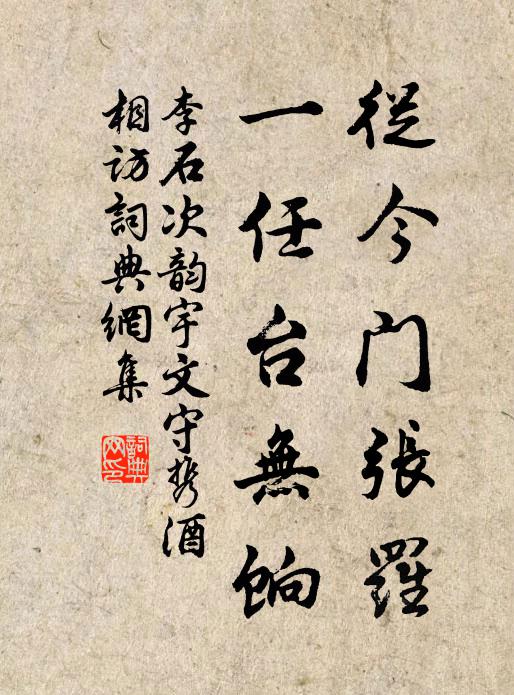 從今門張羅
一任台無餉
李石次韵宇文守携酒
相訪詞典網集
詞典
网印